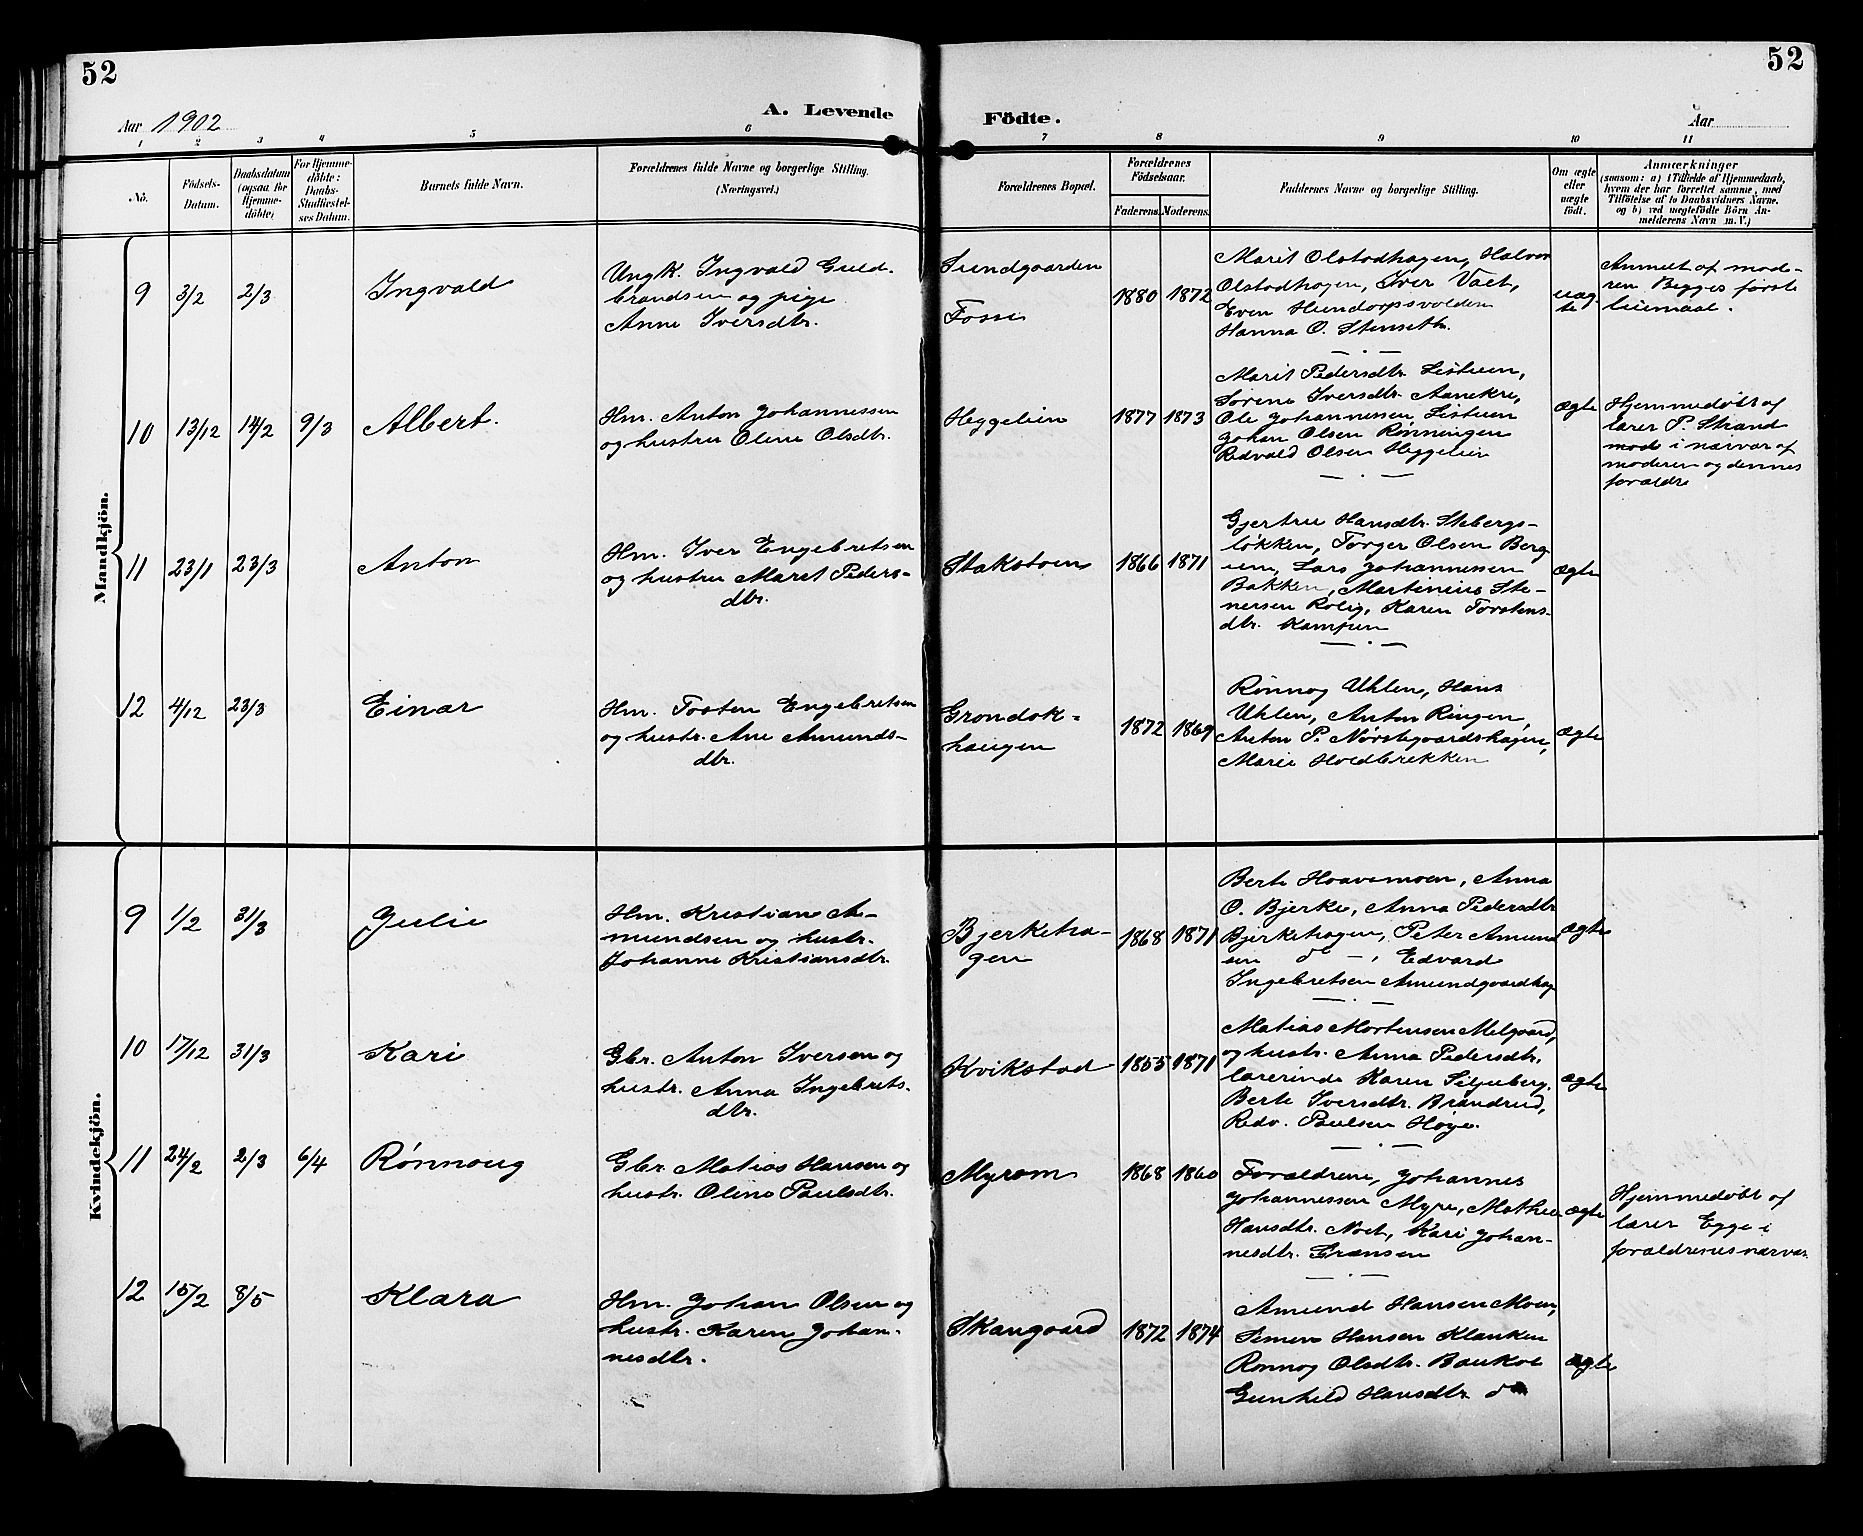 52
52
Aar 1902
A. Levende
Födte.
Aar
1 2 3 4 5 6 7 8 9 10 11
No.
Födsels-
Datum.
Daabsdatum
(ogsaa for
Hjemme-
döbte)
For Hjemme-
döbte:
Daabs-
Stadfæstel-
ses Datum.
Barnets fulde Navn.
Forældrenes fulde Navne og borgerlige Stilling.
(Næringsvei.)
Forældrenes Bopæl.
Forældrenes
Födselsaar.
Faderens.
Moderens.
Faddernes Navne og borgerlige Stilling.
Om ægte
eller
uægte
födt.
Anmærkninger
(saasom: a) i Tilfælde af Hjemmedaab,
hvem der har forrettet samme, med
Tilföielse af to Daabsvidners Navne,
og b) ved uegtefödte Börn An-
melderens Navn m. V.)
Mandkjön.
9 3/2 2/3
Ingvald
Ungk. Ingvald Guld-
brandsen og pige
Anne Iversdtr.
Sundgaarden
Fosse
1880 1872
Marit Olstadhagen, Halvor
Olstadhagen, Iver Vaet,
Even Hundorpsvolden
Hanna O. Stenseth.
uæg-
te
Anmeldt af mode-
ren Begges første
leiemaal.
10 13/12 14/2 9/3
Albert.
Hm. Anton Johannessen
og hustru Oline Olsdtr.
Heggelien
1877 1873
Marit Pedersdtr. Listuen,
Sørine Iversdtr. Aanekre,
Ole Johannessen Listuen
Johan Olsen Rønningen
Redvald Olsen Heggelien
ægte
Hjemmedøbt af
lærer P. Strand
mode i nærvær af
moderen og dennes
forældre
11 23/1 23/3
Anton
Hm. Iver Engebretsen
og hustru Maret Peders-
dtr.
Stakstoen
1866 1871
Gjertru Hansdtr. Stebergs-
løkken, Torger Olsen Berg-
um, Lars Johannessen
Bakken, Martinius Ste-
nersen Rolig, Karen Torstens-
dtr. Kampen
ægte
12 4/12 23/3
Einar
Hm. Tosten Engebretsen
og hustr. Ane Amunds-
dtr.
Grondok-
haugen
1872 1869
Rønnog Uhlen, Hans
Uhlen, Anton Ringen,
Anton P. Nørstegaardshagen,
Marie Holdbrekken
ægte
Kvindekjön.
9 1/2 31/3
Julie
Hm. Kristian A-
mundsen og hustr.
Johanne Kristiansdtr.
Bjerkeha-
gen
1868 1871
Berte Haavemoen, Anna
O. Bjerke, Anna Pedersdtr
Bjerkehagen, Peter Amund
sen do —, Edvard
Ingebretsen Amundgaardhag
ægte
10 17/12 31/3
Kari
Gbr. Anton Iversen og
hustr. Anna Ingebrets-
dtr.
Kvikstad
1855 1871
Matias Mortensen Melgaard,
og hustr. Anna Pedersdtr.
lærerinde Karen Siljuberg.
Berte Iversdtr. Brandrud,
Redv. Paulsen Høye.
ægte
11 24/2 2/3 6/4
Rønnoug
Gbr. Matias Hansen og
hustr. Oline Paulsdtr.
Myrom
1868 1860
Forældrene, Johannes
Johannessen Myre, Mathea
Hansdtr. Noet, Kari Johan-
nesdtr. Grænsen
ægte
Hjemmedøbt af
lærer Egge i
forældrenes nærvær
12 15/2 8/5
Klara
Hm. Johan Olsen og
hustr. Karen Johan-
nesdtr.
Skaugaard
1872 1874
Amund Hansen Moen,
Simen Hansen Klanken
Rønnog Olsdtr. Baukol
Gunhild Hansdtr. do
ægte